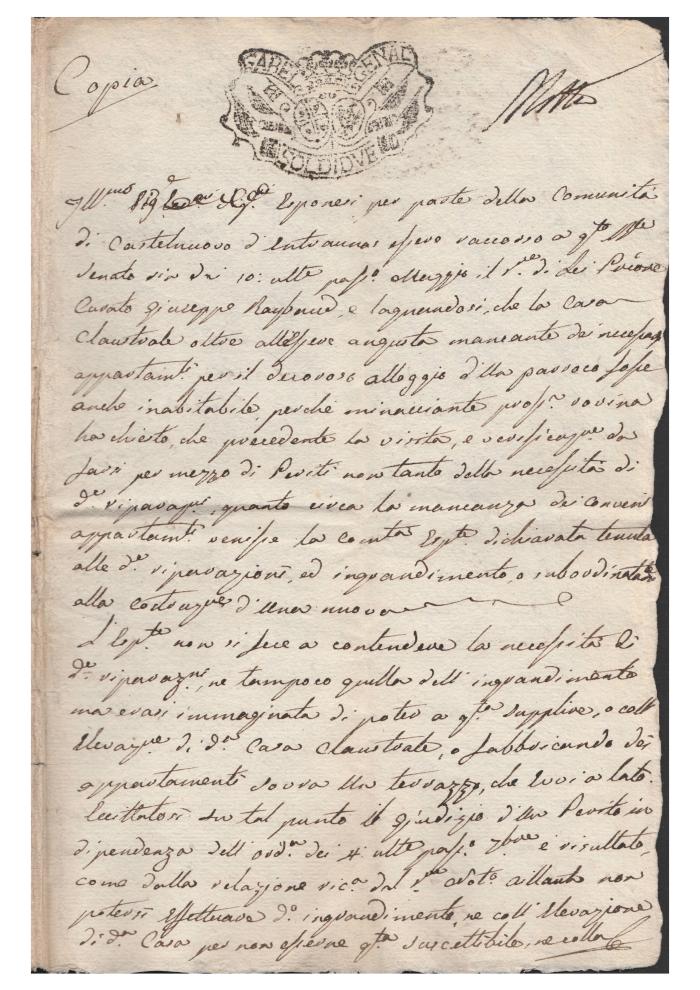 Copia
GABEL GENAL
SOLDI DVE
Ill.mo Sig.e Esponesi per parte della Comunità
di Castelnuovo d'Entraunas essere raccorso a q.to
Senato sin dai 10: ulte pass.o Maggio il S.r di Lei Priore
Curato Giuseppe Raybaud, e lagnandosi, che la Casa
Claustrale oltre all'essere angusta mancante dei necessarj
appartam.ti per il decoroso alloggio d'un parroco fosse
anche inabitabile, perchè minacciante pross.a rovina
ha chiesto, che precedente la visita, e verificaz.ne da
farsi per mezzo di Periti non tanto della necessità di
d.e riparaz.ni, quanto circa la mancanza dei conven.ti
appartam.ti venisse la Com.tà Esp.te dichiarata tenuta
alle d.e riparazioni, ed ingrandimento, o subordinatam.te
alla costruz.ne d'una nuova
L'Esp.te non si fece a contendere la necessità di
d.e riparaz.ni, ne tampoco quella dell'ingrandimento
ma erasi immaginata di poter a q.ta supplire, o coll'
Elevaz.ne di d.a Casa Claustrale, o fabbricando dei
appartamenti sovra un terrazzo, che evvi a lato.
Eccittatosi su tal punto il giudizio d'un Perito in
dipendenza dell'ord.za dei 4 ulte pass.o 7bre è risultato,
come dalla relazione ric.a dal S.r Not.o Aillaud non
potersi Effettuare d.o ingrandimento, ne coll'Elevazione
di d.a Casa per non esserne q.ta suscettibile, ne colla